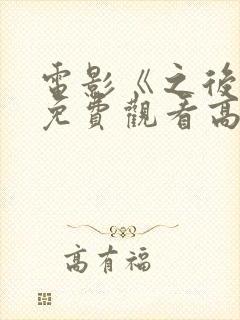 電影《之後
免費觀看高
高有福